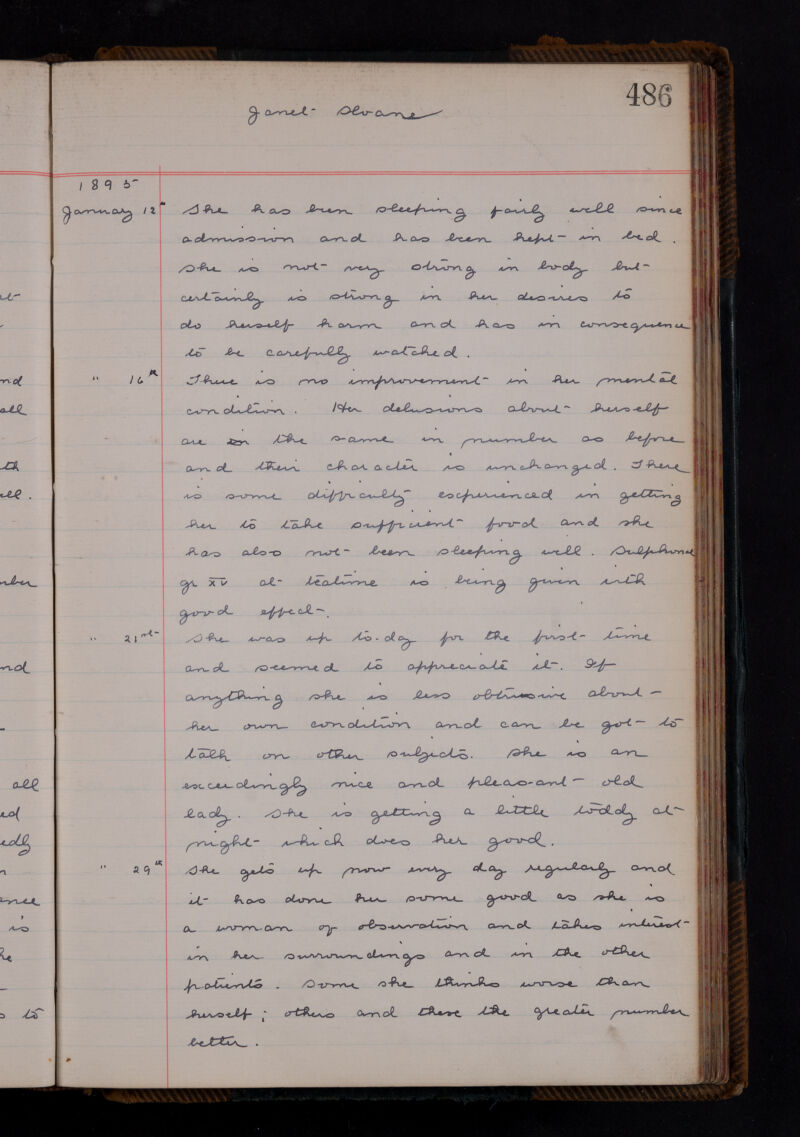 486
Janet Sloane
1895
January 12th She has been sleeping fairly well since
admission and has been kept in bed.
She is not very strong in body but
certainly is strong in her desires to
do herself harm and has in consequence
to be carefully watched.
" 16th There is no improvement in her mental
condition. Her delusions about herself
are the same in number as before
and their character is unchanged. There
is some difficulty experienced in getting
her to take sufficient food and she
has also not been sleeping well. Sulphonal
gr xv at teatime is being given with
good effect.
" 21st She was up to-day for the first time
and seemed to appreciate it. If
anything she is less obtrusive about
her own condition and can be got to
talk on other subjects. She is an
exceedingly nice and pleasant old
lady. She is getting a little toddy at
night which does her good.
" 29th She gets up now every day regularly and
it has done her some good as she is
a woman of observation and takes interest
in her surroundings and in the other
patients. Some she thinks worse than
herself; others and these the greater number
better.
nd
all
th
ell.
nd
all
ed
edly
is
he
s to